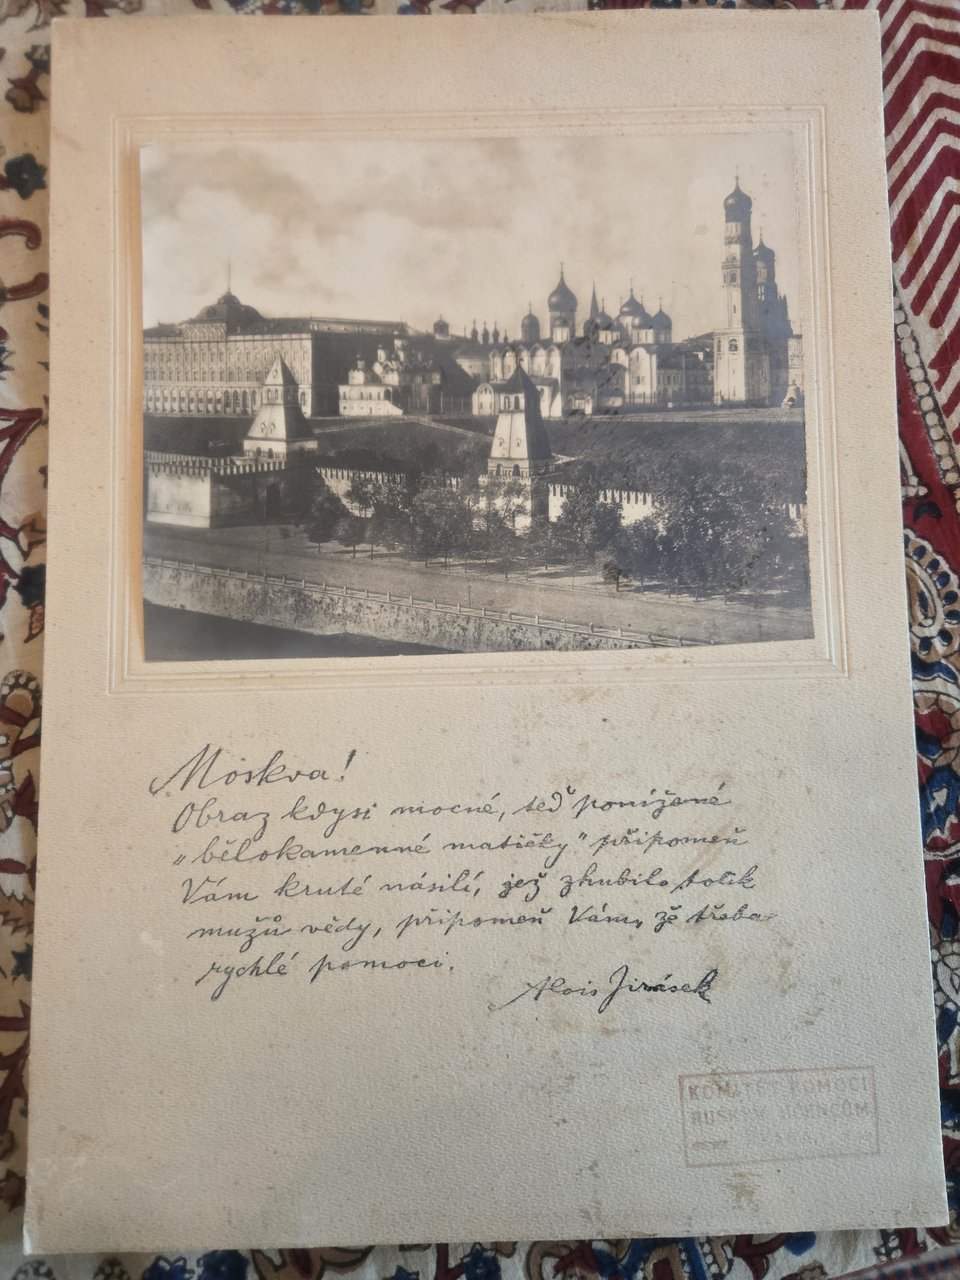 Moskva!
Obraz kdysi mocné, teď ponížené
„bělokamenné matičky" připomeň
Vám kruté násilí, jež zhubilo tolik
mužů vědy, připomeň Vám, že třeba
rychlé pomoci.
Alois Jirásek
KOMITÉT POMOCI
RUSKÝM UČENCŮM